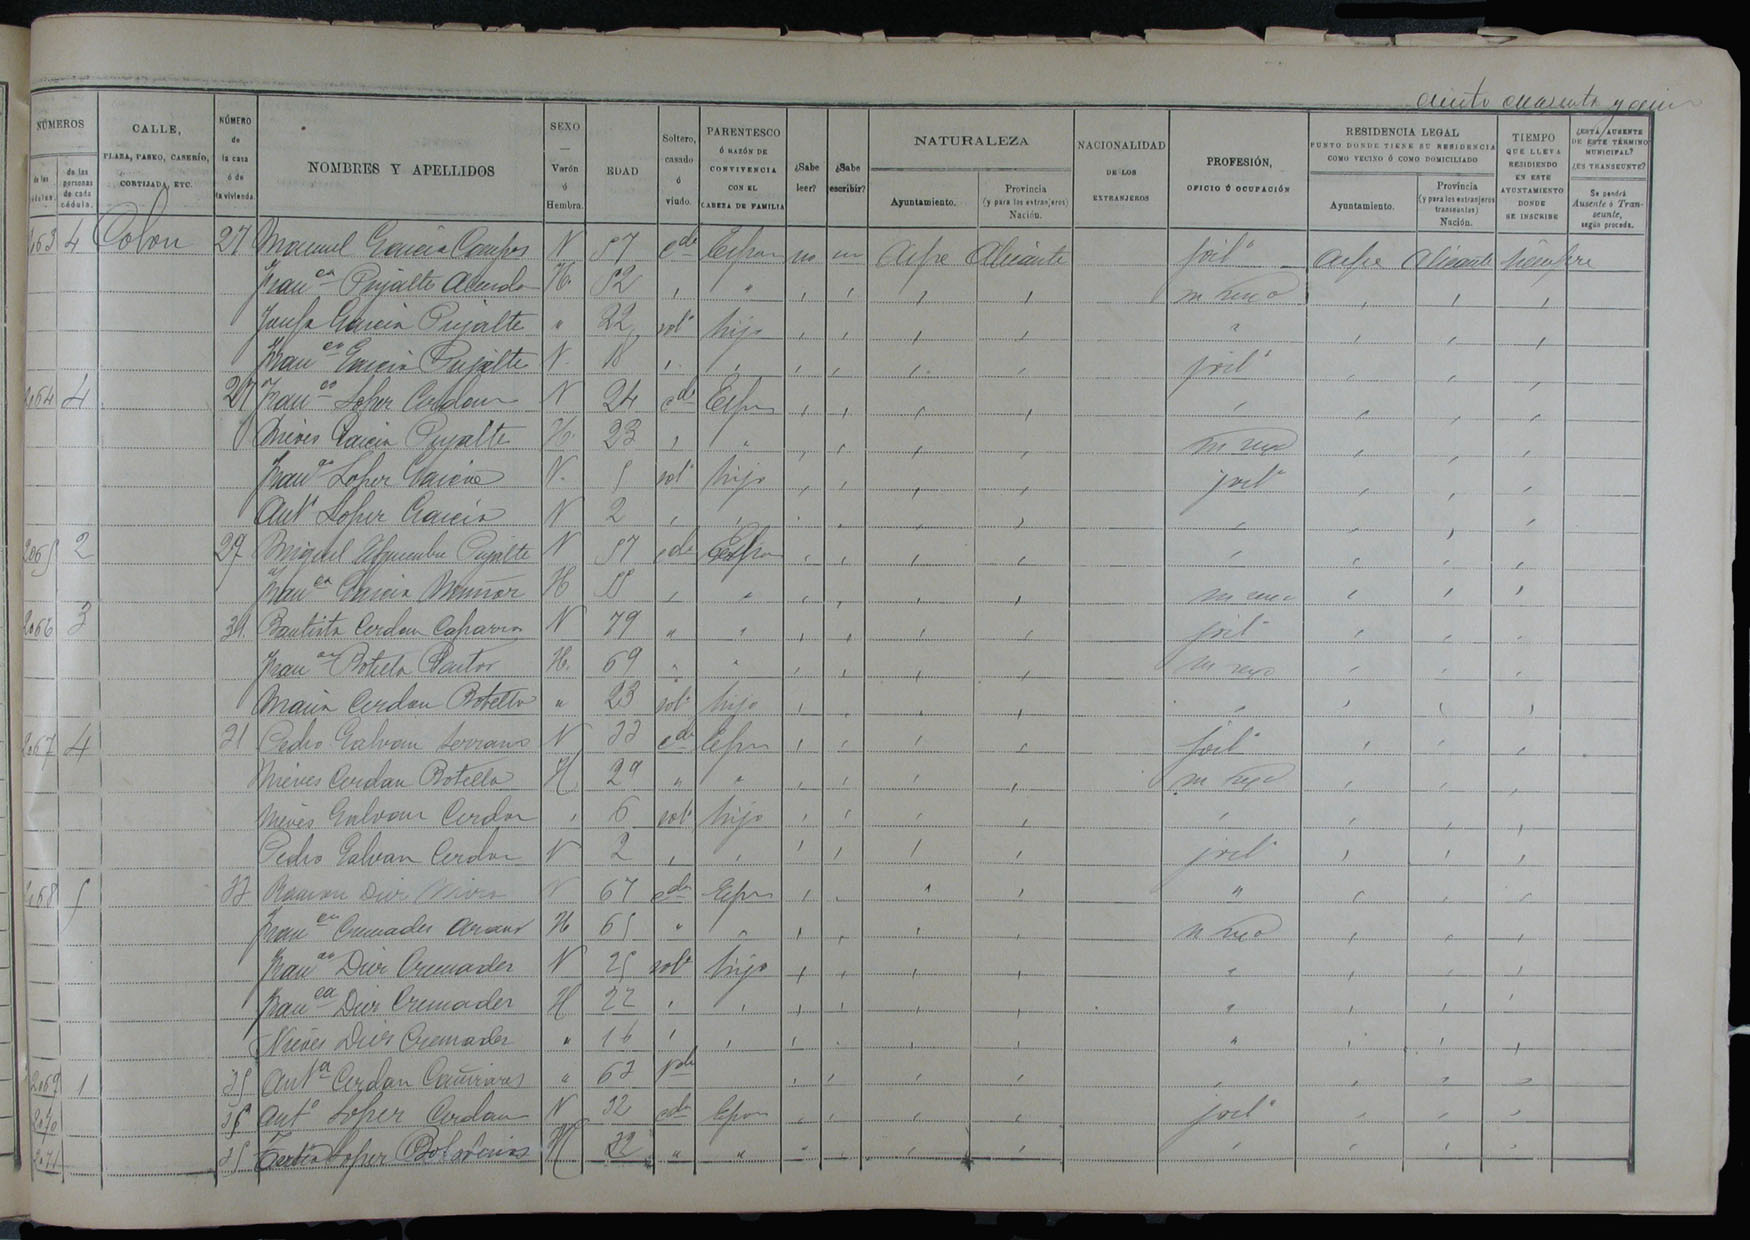 ciento cuarenta y cinco
NÚMEROS
de las cédulas.
de las personas de cada cédula.
CALLE, PLAZA, PASEO, CASERÍO, CORTIJADA, ETC.
NÚMERO de la casa ó de la vivienda.
NOMBRES Y APELLIDOS
SEXO — Varón ó Hembra.
EDAD
Soltero, casado ó viudo.
PARENTESCO Ó RAZÓN DE CONVIVENCIA CON EL CABEZA DE FAMILIA
¿Sabe leer?
¿Sabe escribir?
NATURALEZA
Ayuntamiento.
Provincia (y para los extranjeros) Nación.
NACIONALIDAD DE LOS EXTRANJEROS
PROFESIÓN, OFICIO Ó OCUPACIÓN
RESIDENCIA LEGAL
PUNTO DONDE TIENE SU RESIDENCIA COMO VECINO Ó COMO DOMICILIADO
Ayuntamiento.
Provincia (y para los extranjeros transeuntes) Nación.
TIEMPO QUE LLEVA RESIDIENDO EN ESTE AYUNTAMIENTO DONDE SE INSCRIBE
¿ESTÁ AUSENTE DE ESTE TÉRMINO MUNICIPAL? ¿ES TRANSEUNTE?
Se pondrá Ausente ó Transeunte, según proceda.
2063 4 Colon 27 Manuel Garcia Campos V 57 cdo Espos no no Aspe Alicante joilº Aspe Alicante siempre
Franca Pujalte Alenda H. 52 , " , , , , su sexo , , ,
Josefa Garcia Pujalte " 22 solº hijo , , , , " , , ,
Franco Garcia Pujalte V. 18 , , , , , , joilº , , ,
2064 4 27 Franco Loper Cerdan V 24 cdo Espos , , , , , , , ,
Nieves Garcia Pujalte H. 23 , " , , , , su sexo , , ,
Franco Loper Garcia V. 5 solº hijo , , , , joilº , , ,
Antº Loper Garcia V 2 , , , , , , , , , ,
2065 2 29 Miguel Pujalte V 57 cdo Espos , , , , , , , ,
Franca Garcia Muñoz H 55 , " , , , , su sexo , , ,
2066 3 Bautista Cerdan Caparros V 79 " " , , , , joilº , , ,
Franca Botella Pastor H. 69 " " , , , , su sexo , , ,
Maria Cerdan Botella " 23 solº hijo , , , , , , , ,
2067 4 31 Pedro Galvan Serrano V 33 cdo Espos , , , , joilº , , ,
Nieves Cerdan Botella H 29 " " , , , , su sexo , , ,
Nieves Galvan Cerdan , 6 solº hijo , , , , , , , ,
Pedro Galvan Cerdan V 2 , , , , , , joilº , , ,
2068 5 33 Ramon Dies V 67 cdo Espos , , , , " , , ,
Franca Cremades H 65 " , , , , , su sexo , , ,
Franco Dies Cremades V 25 solº hijo , , , , " , , ,
Franca Dies Cremades H 22 , , , , , , " , , ,
Nieves Dies Cremades " 16 , , , , , , " , , ,
2069 1 35 Antª Cerdan Cañizares " 63 vda , , , , , , , ,
2070 35 Antº Loper Cerdan V 32 cdo Espos , , , , joilº , , ,
2071 35 Loper H 32 " " , , , , , , , ,